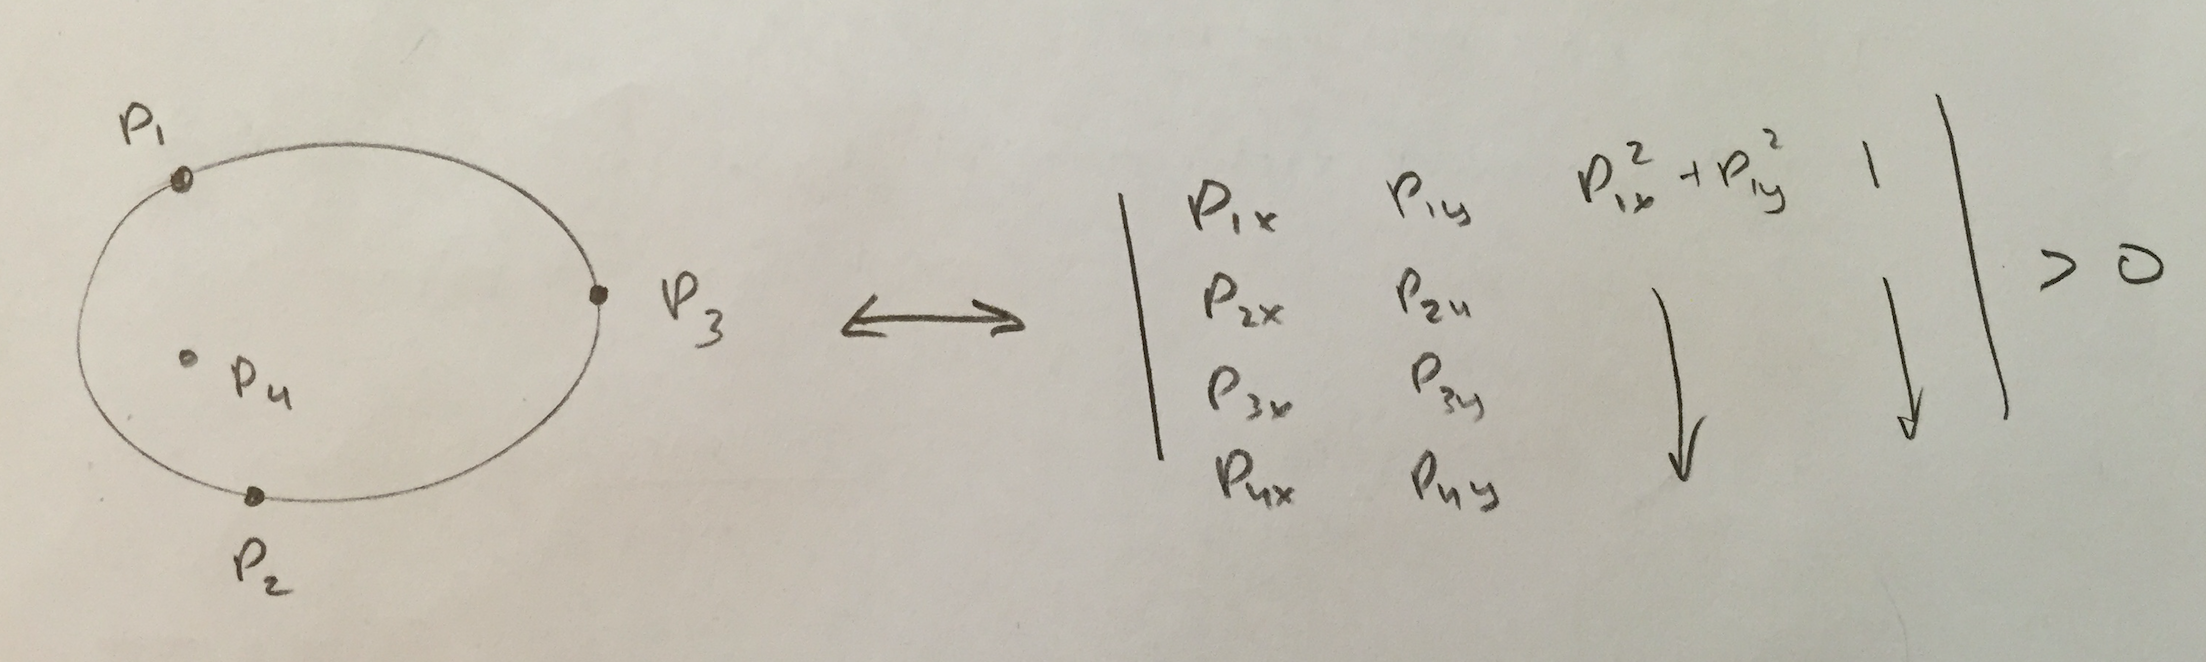 P1
P3
P4
P2
P1x P1y P1x² + P1y² 1
P2x P2y
P3x P3y
P4x P4y
> 0